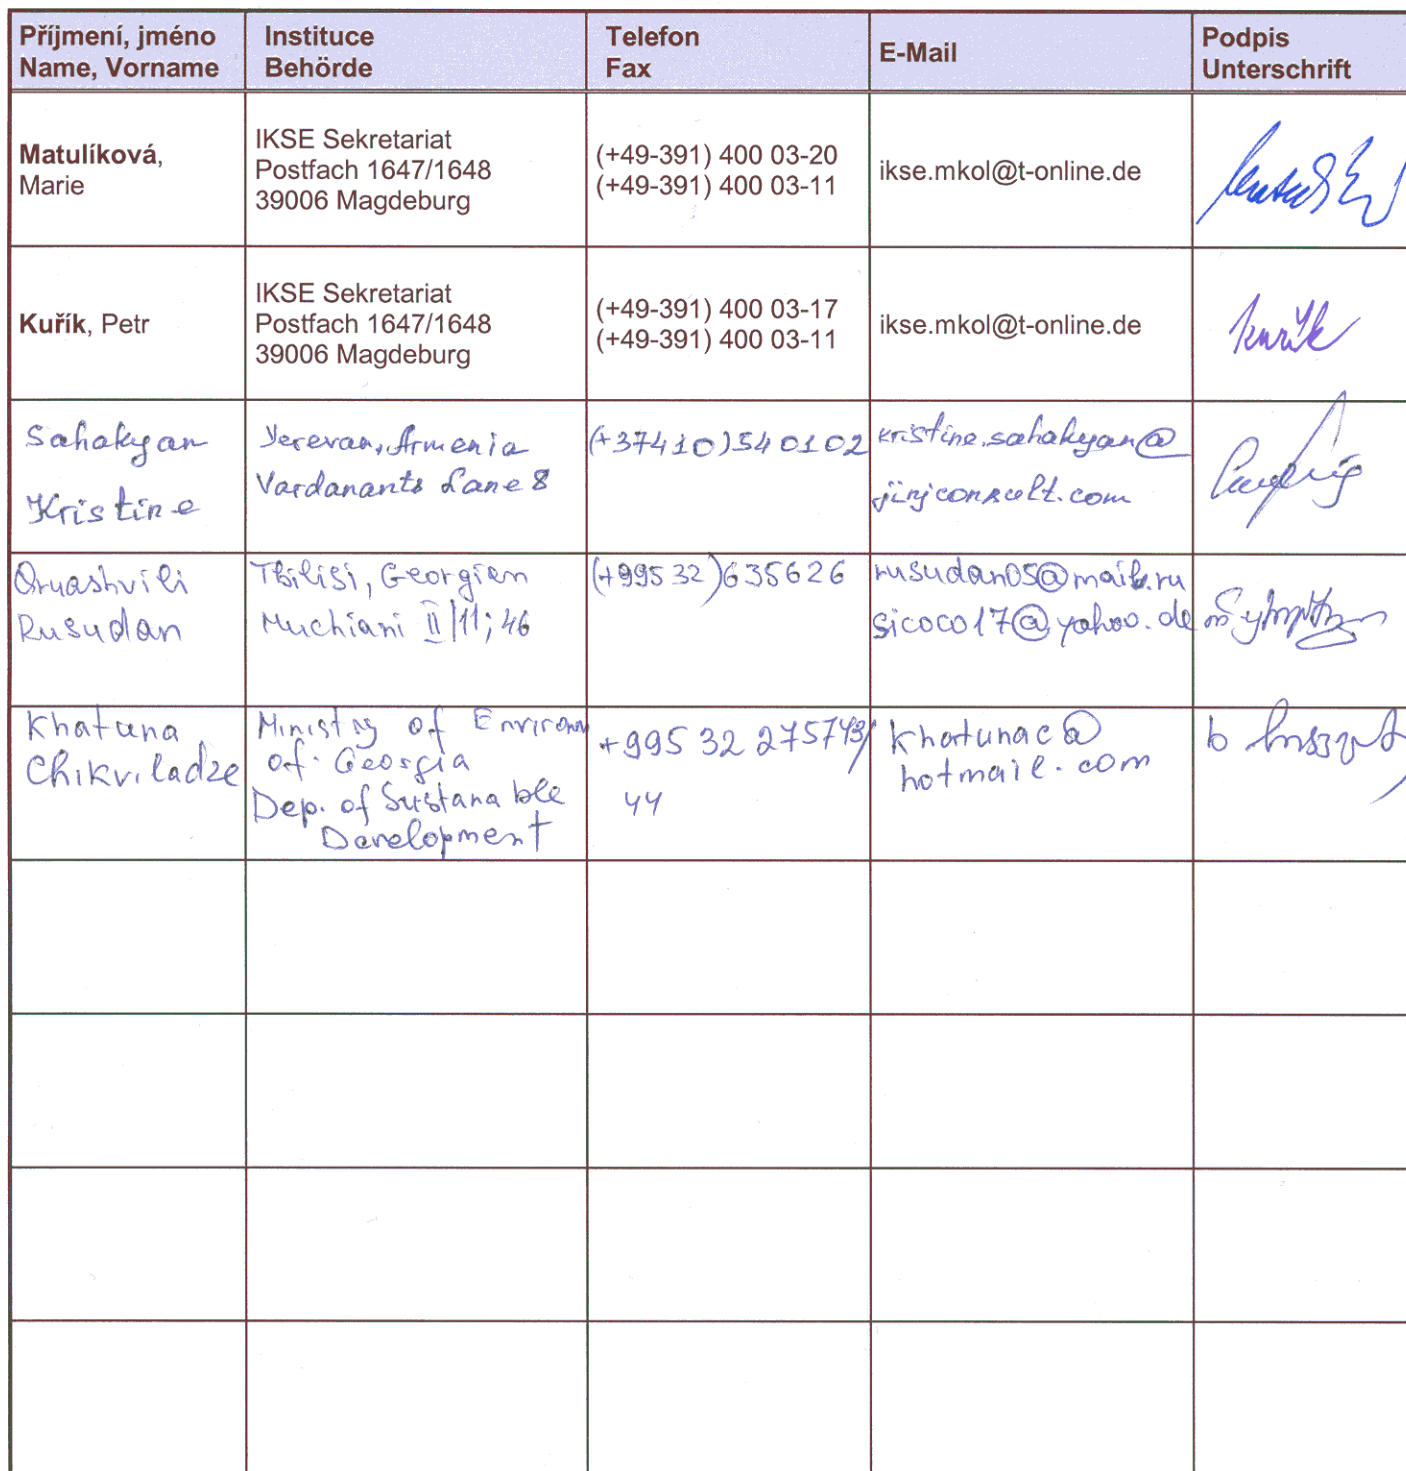 Příjmení, jméno
Name, Vorname
Instituce
Behörde
Telefon
Fax
E-Mail
Podpis
Unterschrift
Matulíková,
Marie
IKSE Sekretariat
Postfach 1647/1648
39006 Magdeburg
(+49-391) 400 03-20
(+49-391) 400 03-11
ikse.mkol@t-online.de
Kuřík, Petr
IKSE Sekretariat
Postfach 1647/1648
39006 Magdeburg
(+49-391) 400 03-17
(+49-391) 400 03-11
ikse.mkol@t-online.de
Kuřík
Sahakyan
Kristine
Yerevan, Armenia
Vardanants Lane 8
(+37410)540102
kristine.sahakyan@
jinjconsult.com
Qruashvili
Rusudan
Tbilisi, Georgien
Muchiani II/11; 46
(+995 32)635626
rusudan05@mail.ru
sicoco17@yahoo.de
Khatuna
Chikviladze
Ministry of Environ
of Georgia
Dep. of Sustanable
Development
+995 32 275743/
44
khatunac@
hotmail.com